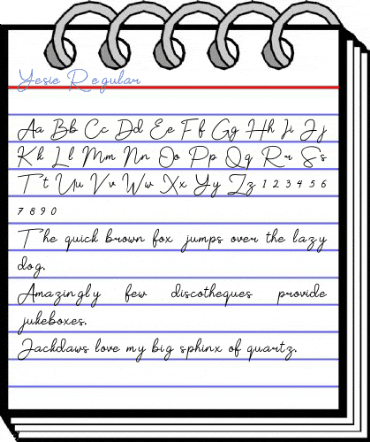 Yesie Regular
Aa Bb Cc Dd Ee Ff Gg Hh Ii Jj
Kk Ll Mm Nn Oo Pp Qq Rr Ss
Tt Uu Vv Ww Xx Yy Zz 1 2 3 4 5 6
7 8 9 0
The quick brown fox jumps over the lazy
dog.
Amazingly few discotheques provide
jukeboxes.
Jackdaws love my big sphinx of quartz.